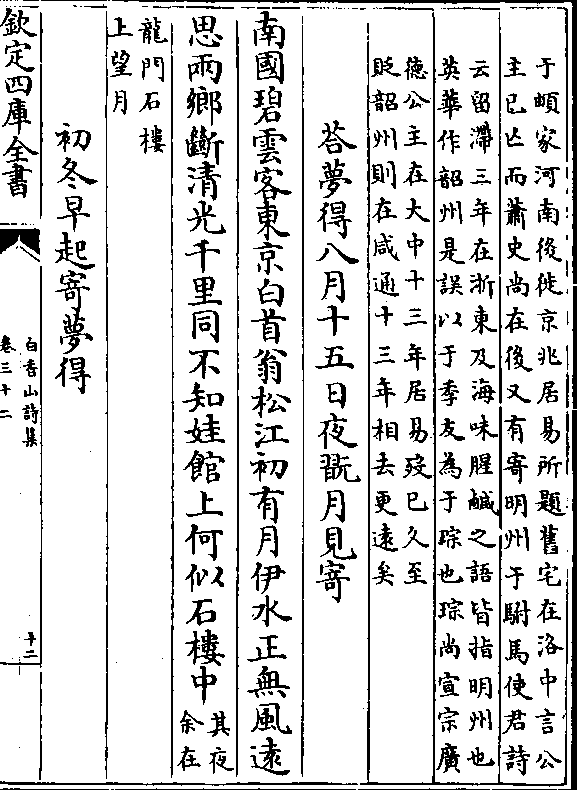 于頔家河南後徙京兆居易所題舊宅在洛中言公
主已亡而蕭史尚在後又有寄明州于駙馬使君詩
云留滯三年在浙東及海味腥鹹之語皆指明州也
英華作韶州是誤以于季友為于琮也琮尚宣宗廣
德公主在大中十三年居易歿已久至
貶韶州則在咸通十三年相去更遠矣
荅夢得八月十五日夜翫月見寄
南國碧雲客東京白首翁松江初有月伊水正無風遠
思兩鄉斷清光千里同不知娃館上何似石樓中其夜
余在
龍門石樓
上望月
初冬早起寄夢得
欽定四庫全書
白香山詩集
卷三十二
十二